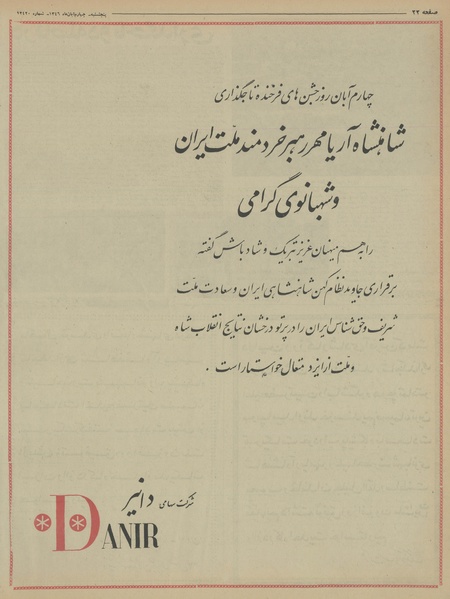 صفحه ۲۲
پنجشنبه - چهارم آبان ماه ۱۳۴۶ - شماره ۱۲۴۲۰
چهارم آبان روز جشن های فرخنده تاجگذاری
شاهنشاه آریامهر رهبر خردمند ملت ایران
و شهبانوی گرامی
را به هم میهنان عزیز تبریک و شادباش گفته
برقراری جاوید نظام کهن شاهنشاهی ایران و سعادت ملت
شریف و حق شناس ایران را در پرتو درخشان نتایج انقلاب شاه
و ملت از ایزد متعال خواستار است .
شرکت سهامی دانیر
DANIR